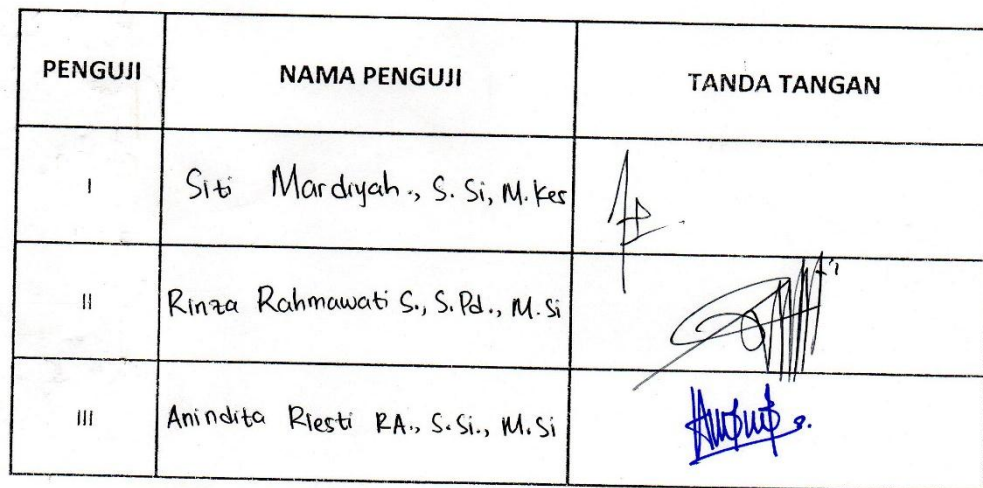 PENGUJI NAMA PENGUJI TANDA TANGAN
I Siti Mardiyah., S. Si, M. Kes
II Rinza Rahmawati S., S.Pd., M. Si
III Anindita Riesti RA., S. Si., M. Si